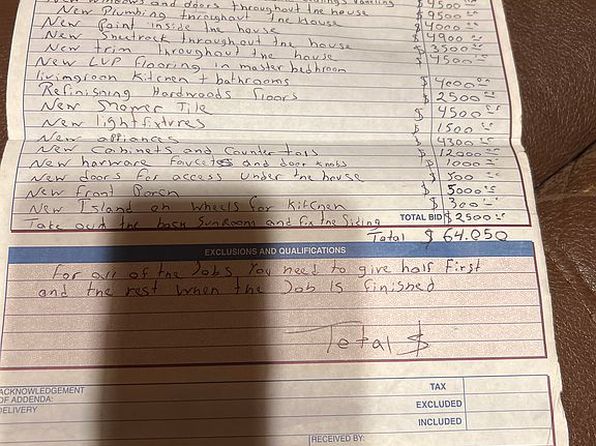 windows and doors throughout the house $4500
New Plumbing throughout the house $9500
New Paint inside the house $4000
New Sheetrock throughout the house $4900
New trim throughout the house $3500
New LVP flooring in master bedroom $4500
livingroom Kitchen + bathrooms
Refinishing Hardwoods floors $4000
New Shower Tile $2500
New lightfixtures $4500
New appliances $1500
New Cabinets and Counter tops $4300
New harware Faucets and door knobs $12000
New doors for access under the house $1000
New front Porch $500
New Island on wheels for kitchen $5000
Take out the back Sunroom and fix the Siding $300
TOTAL BID $2500
Total $64.050
EXCLUSIONS AND QUALIFICATIONS
For all of the Jobs You need to give half First
and the rest when the Job Is Finished
Total $
ACKNOWLEDGEMENT
OF ADDENDA:
DELIVERY
TAX
EXCLUDED
INCLUDED
RECEIVED BY: